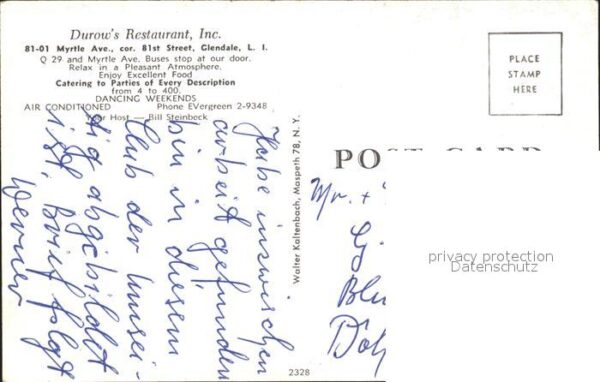 Durow's Restaurant, Inc.
81-01 Myrtle Ave., cor. 81st Street, Glendale, L. I.
Q 29 and Myrtle Ave. Buses stop at our door.
Relax in a Pleasant Atmosphere.
Enjoy Excellent Food
Catering to Parties of Every Description
from 4 to 400.
DANCING WEEKENDS
AIR CONDITIONED Phone EVergreen 2-9348
Your Host — Bill Steinbeck
Habe inzwischen
arbeit gefunden
bin in diesem
Club der umsei-
tig abgebildet
ist. Brief folgt
Werner
Walter Kaltenbach, Maspeth 78, N.Y.
2328
PLACE
STAMP
HERE
POST CARD
Mr. +
privacy protection
Datenschutz